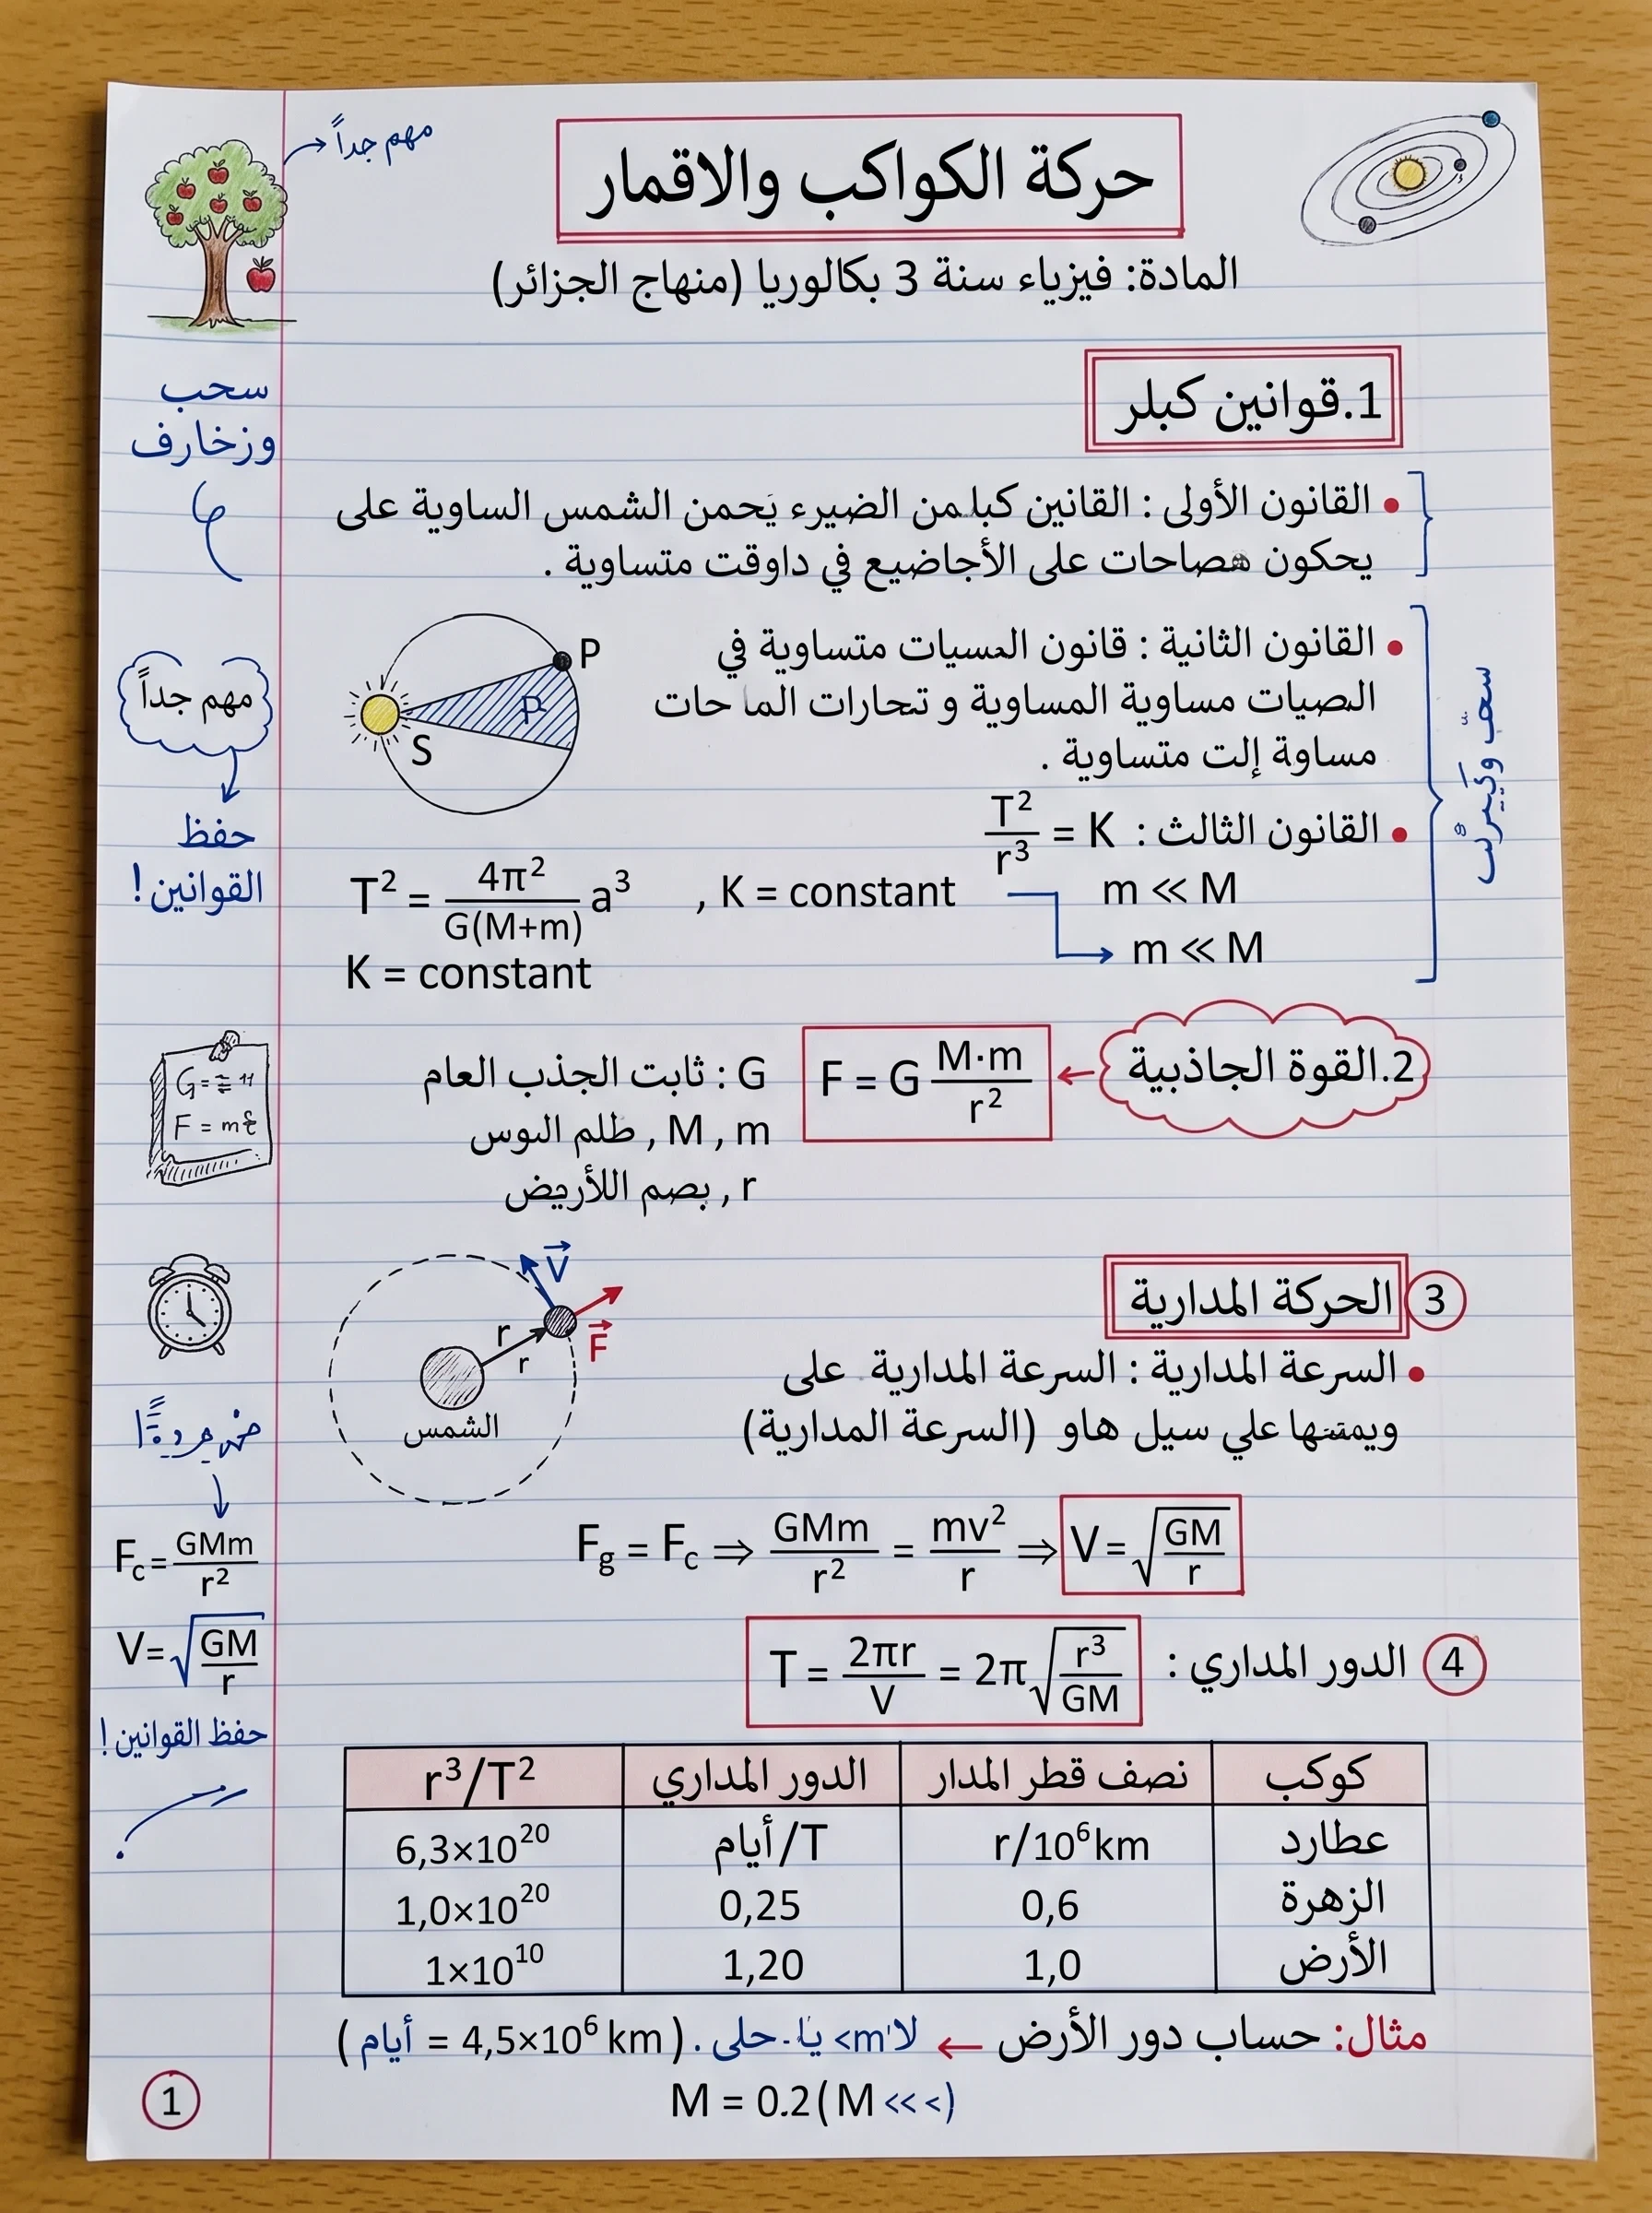 مهم جداً
حركة الكواكب والاقمار
المادة: فيزياء سنة 3 بكالوريا (منهاج الجزائر)
سحب
وزخارف
1.قوانين كبلر
• القانون الأولى : القانين كبلمن الضيرء يَحمن الشمس الساوية على
يحكون هصاحات على الأجاضيع في داوقت متساوية .
• القانون الثانية : قانون المسيات متساوية في
الصيات مساوية المساوية و تحارات الما حات
مساوة إلت متساوية .
P
P
S
مهم جداً
حفظ
القوانين!
• القانون الثالث : T²/r³ = K
T² = 4π²/G(M+m) a³ , K = constant m ≪ M
m ≪ M
K = constant
2.القوة الجاذبية
F = G M·m/r²
G : ثابت الجذب العام
M , m , طلم البوس
r , بصم اللأريض
G=
F = m
3 الحركة المدارية
V
F
r
r
الشمس
• السرعة المدارية : السرعة المدارية على
ويمتها علي سيل هاو (السرعة المدارية)
Fg = Fc ⇒ GMm/r² = mv²/r ⇒ V = √(GM/r)
Fc = GMm/r²
V = √(GM/r)
حفظ القوانين!
4 الدور المداري : T = 2πr/V = 2π√(r³/GM)
كوكب نصف قطر المدار الدور المداري r³/T²
عطارد r/10⁶km T/أيام 6,3×10²⁰
الزهرة 0,6 0,25 1,0×10²⁰
الأرض 1,0 1,20 1×10¹⁰
مثال: حساب دور الأرض ← لا m'> يا حلى . (4,5×10⁶ km = أيام)
M = 0.2(M <<<)
1